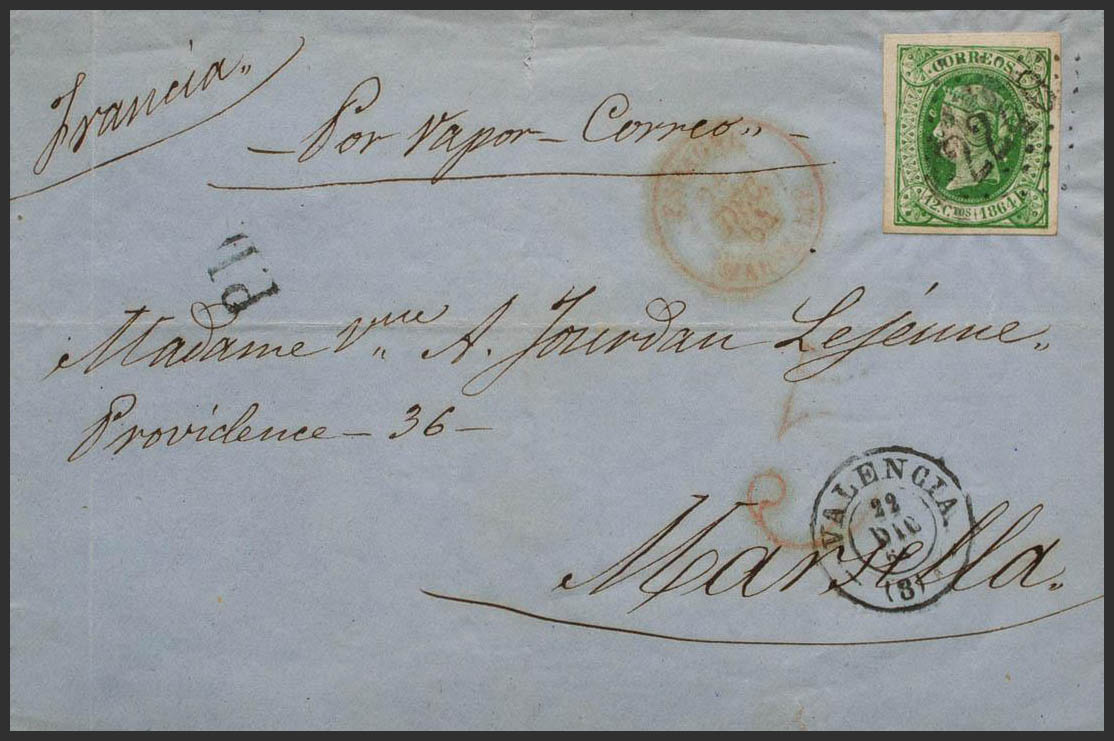 Francia,,
— Por Vapor - Correo,, —
CORREOS
12 Ctos 1864
P.D.
Madame Vve A. Jourdan Lejéune,,
Providence — 36 —
VALENCIA
22
DIC
(3)
Marsella.